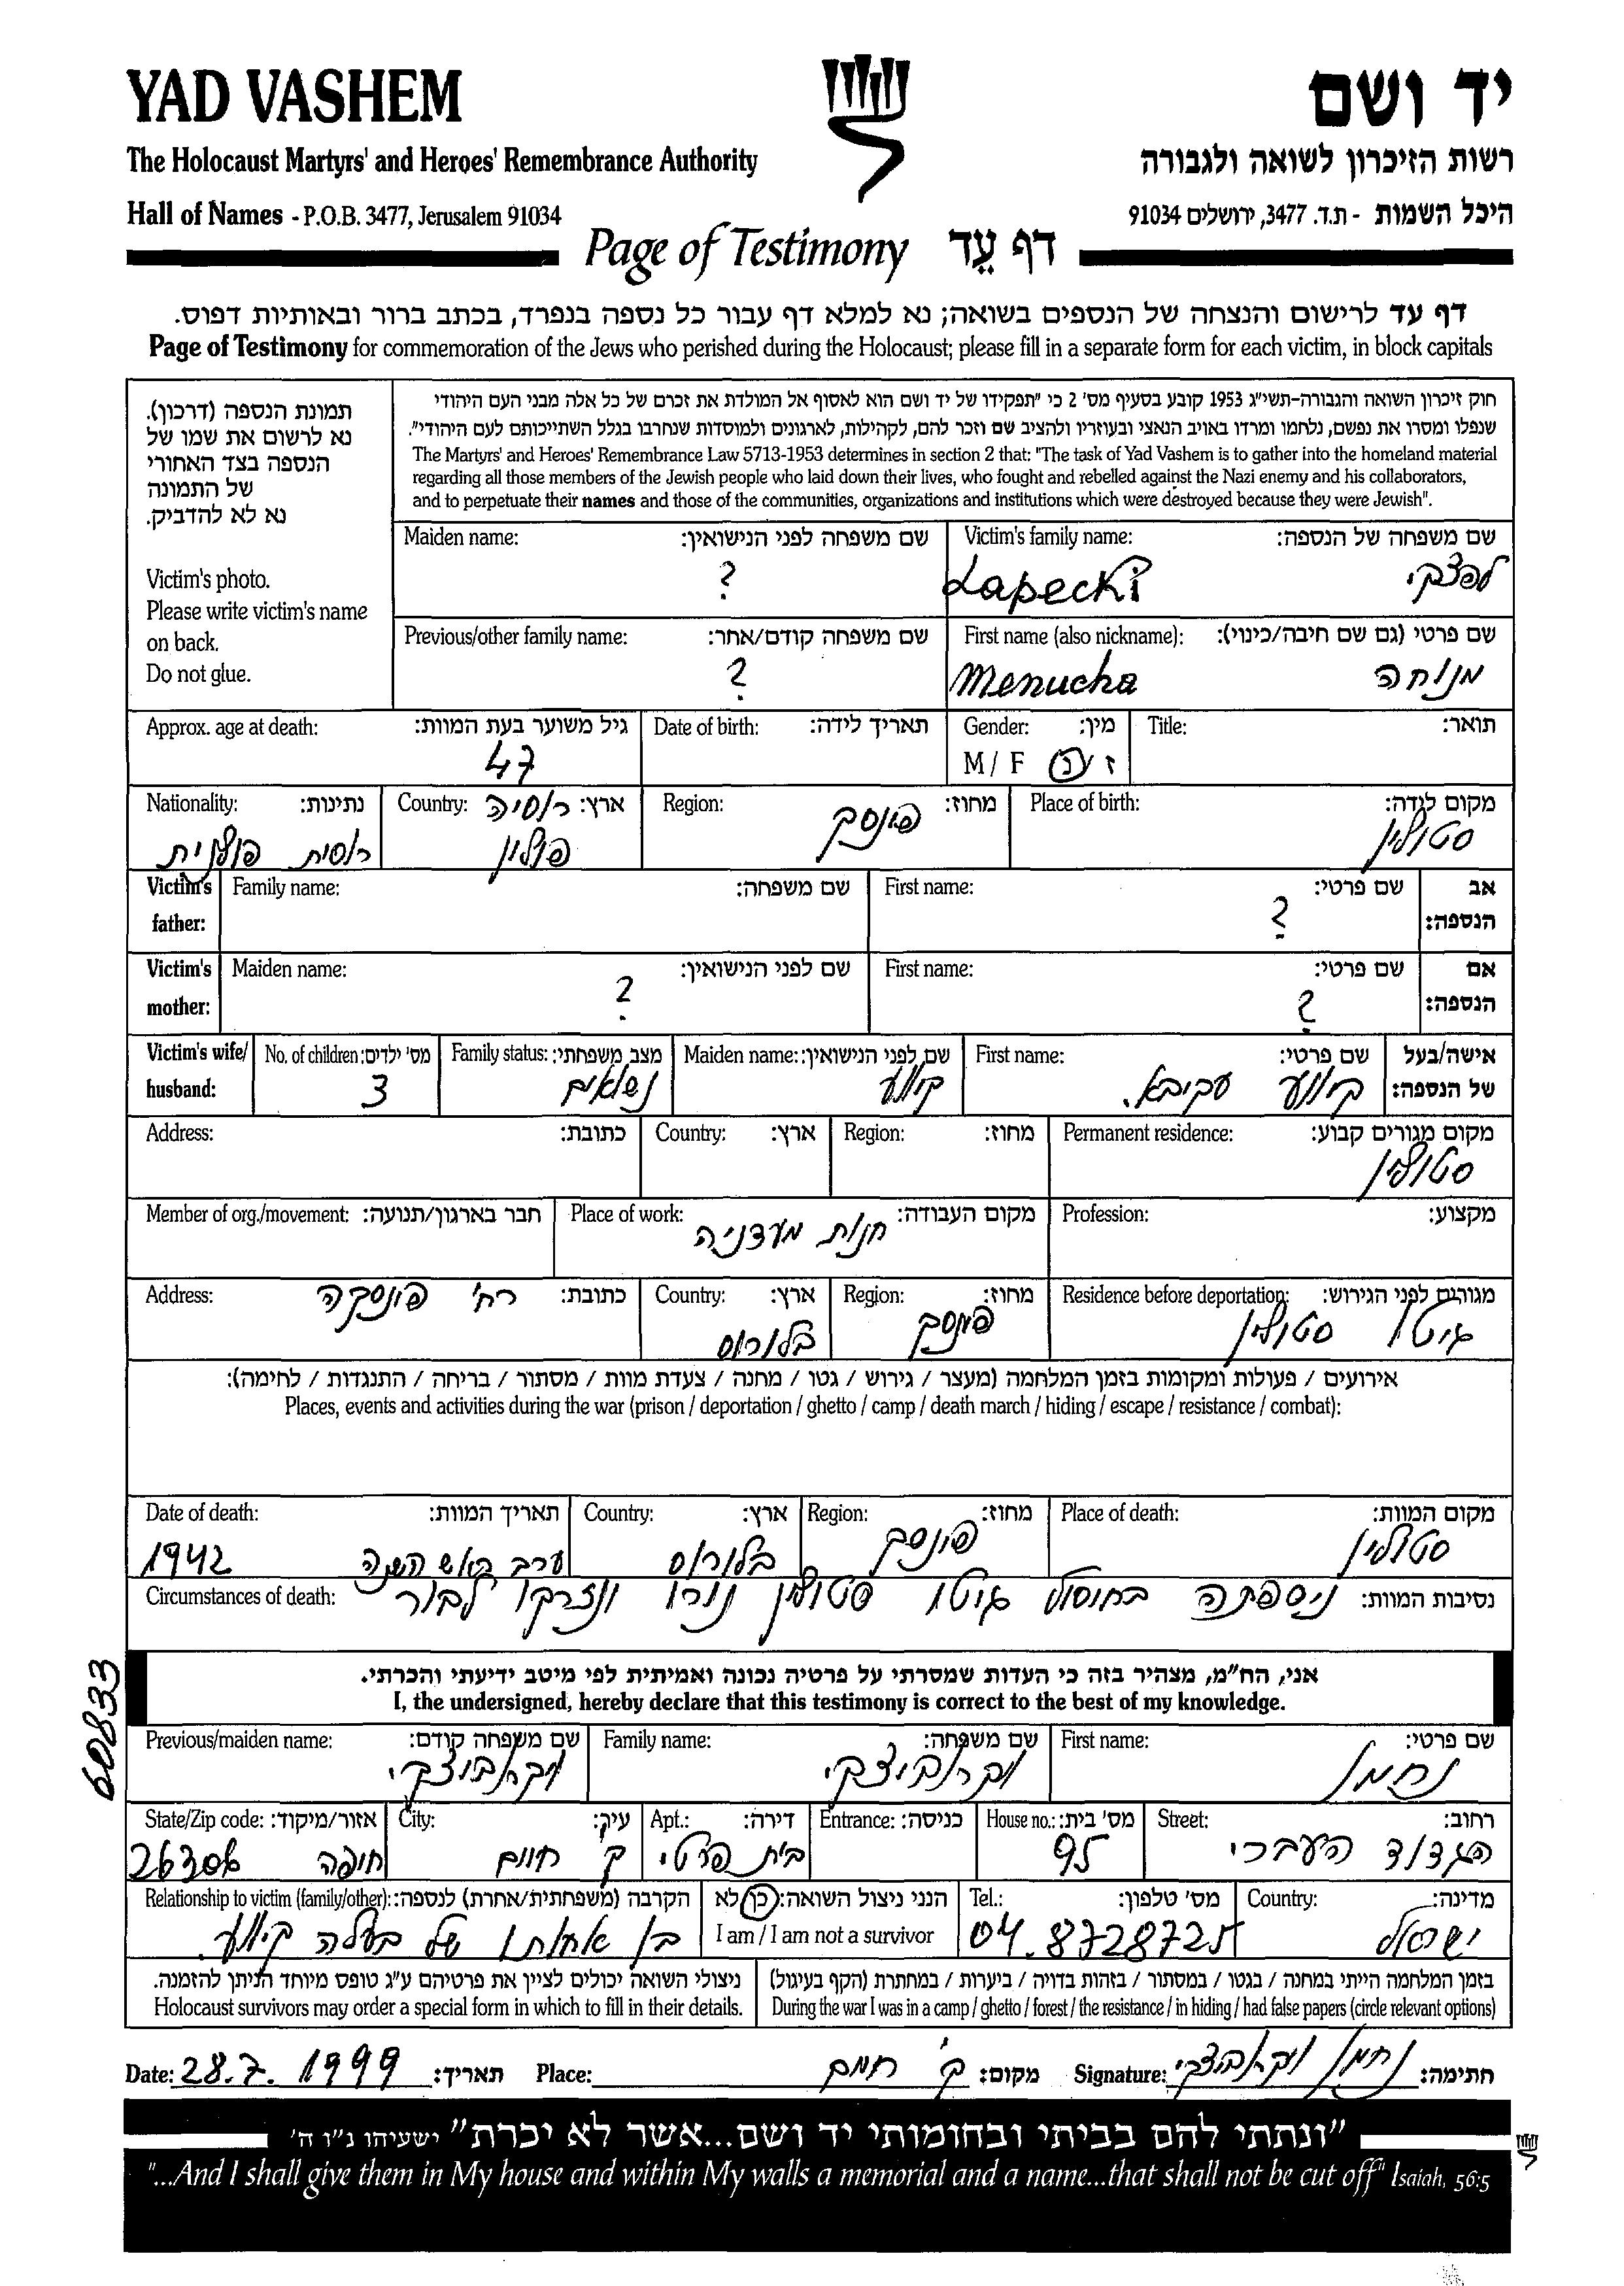 YAD VASHEM
יד ושם
The Holocaust Martyrs' and Heroes' Remembrance Authority
רשות הזיכרון לשואה ולגבורה
Hall of Names - P.O.B. 3477, Jerusalem 91034
היכל השמות - ת.ד. 3477, ירושלים 91034
Page of Testimony דף עֵד
דף עד לרישום והנצחה של הנספים בשואה; נא למלא דף עבור כל נספה בנפרד, בכתב ברור ובאותיות דפוס.
Page of Testimony for commemoration of the Jews who perished during the Holocaust; please fill in a separate form for each victim, in block capitals
תמונת הנספה (דרכון).
נא לרשום את שמו של
הנספה בצד האחורי
של התמונה
נא לא להדביק.
Victim's photo.
Please write victim's name
on back.
Do not glue.
חוק זיכרון השואה והגבורה-תשי"ג 1953 קובע בסעיף מס' 2 כי "תפקידו של יד ושם הוא לאסוף אל המולדת את זכרם של כל אלה מבני העם היהודי
שנפלו ומסרו את נפשם, נלחמו ומרדו באויב הנאצי ובעוזריו ולהציב שם וזכר להם, לקהילות, לארגונים ולמוסדות שנחרבו בגלל השתייכותם לעם היהודי".
The Martyrs' and Heroes' Remembrance Law 5713-1953 determines in section 2 that: "The task of Yad Vashem is to gather into the homeland material
regarding all those members of the Jewish people who laid down their lives, who fought and rebelled against the Nazi enemy and his collaborators,
and to perpetuate their names and those of the communities, organizations and institutions which were destroyed because they were Jewish".
Victim's family name: שם משפחה של הנספה:
Lapecki לפצקי
Maiden name: שם משפחה לפני הנישואין:
?
First name (also nickname): שם פרטי (גם שם חיבה/כינוי):
Menucha מנוחה
Previous/other family name: שם משפחה קודם/אחר:
?
Title: תואר:
Gender: מין:
M / F ז / נ
Date of birth: תאריך לידה:
Approx. age at death: גיל משוער בעת המוות:
47
Place of birth: מקום לידה:
סטולין
Region: מחוז:
פינסק
Country: ארץ: רוסיה
פולין
Nationality: נתינות:
רוסית פולנית
Victim's father: אב הנספה:
First name: שם פרטי:
?
Family name: שם משפחה:
Victim's mother: אם הנספה:
First name: שם פרטי:
?
Maiden name: שם לפני הנישואין:
?
Victim's wife/ husband: אישה/בעל של הנספה:
First name: שם פרטי:
עקיבא.
Maiden name: שם לפני הנישואין:
Family status: מצב משפחתי:
נשואים
No. of children: מס' ילדים:
3
Permanent residence: מקום מגורים קבוע:
סטולין
Region: מחוז:
Country: ארץ:
Address: כתובת:
Profession: מקצוע:
Place of work: מקום העבודה:
חנות מעדניה
Member of org./movement: חבר בארגון/תנועה:
Residence before deportation: מגורים לפני הגירוש:
גיטו סטולין
Region: מחוז:
פינסק
Country: ארץ:
בלורוס
Address: כתובת: רח' פינסקה
אירועים / פעולות ומקומות בזמן המלחמה (מעצר / גירוש / גטו / מחנה / צעדת מוות / מסתור / בריחה / התנגדות / לחימה):
Places, events and activities during the war (prison / deportation / ghetto / camp / death march / hiding / escape / resistance / combat):
Place of death: מקום המוות:
סטולין
Region: מחוז:
פינסק
Country: ארץ:
בלורוס
Date of death: תאריך המוות:
ערב ראש השנה 1942
Circumstances of death: נסיבות המוות: ניספתה בחוסול גיטו סטולין נורו ונזרקו לבור
אני, הח"מ, מצהיר בזה כי העדות שמסרתי על פרטיה נכונה ואמיתית לפי מיטב ידיעתי והכרתי.
I, the undersigned, hereby declare that this testimony is correct to the best of my knowledge.
60833
First name: שם פרטי:
נחמן
Family name: שם משפחה:
Previous/maiden name: שם משפחה קודם:
Street: רחוב:
הגדוד העברי
House no.: מס' בית:
95
Entrance: כניסה:
Apt.: דירה:
בית פרטי
City: עיר:
ק חיים
State/Zip code: אזור/מיקוד:
חיפה
Country: מדינה:
ישראל
Tel.: מס' טלפון:
04.8728725
הנני ניצול השואה: כן / לא
I am / I am not a survivor
Relationship to victim (family/other): הקרבה (משפחתית/אחרת) לנספה:
בן אחותו של בעלה
בזמן המלחמה הייתי במחנה / בגטו / במסתור / בזהות בדויה / ביערות / במחתרת (הקף בעיגול)
During the war I was in a camp / ghetto / forest / the resistance / in hiding / had false papers (circle relevant options)
ניצולי השואה יכולים לציין את פרטיהם ע"ג טופס מיוחד הניתן להזמנה.
Holocaust survivors may order a special form in which to fill in their details.
Date: 28.7.1999 תאריך: Place: ק' חיים מקום: Signature: נחמן חתימה:
"ונתתי להם בביתי ובחומותי יד ושם...אשר לא יכרת" ישעיהו נ"ו ה'
"...And I shall give them in My house and within My walls a memorial and a name...that shall not be cut off" Isaiah, 56:5